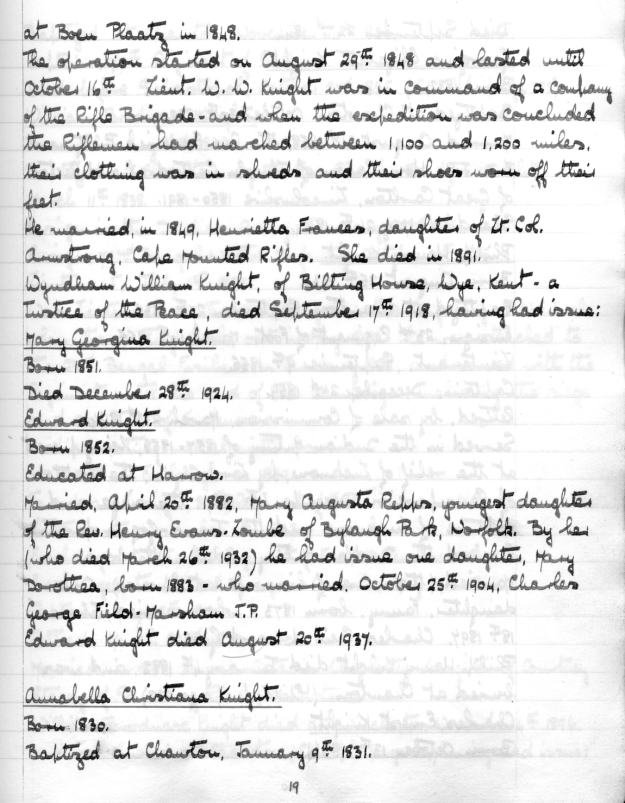 at Boem Plaatz in 1848.
The operation started on August 29th 1848 and lasted until
October 16th Lieut. W. W. Knight was in command of a company
of the Rifle Brigade - and when the expedition was concluded
the Riflemen had marched between 1,100 and 1,200 miles,
their clothing was in shreds and their shoes worn off their
feet.
He married, in 1849, Henrietta Frances, daughter of Lt. Col.
Armstrong, Cape Mounted Rifles. She died in 1891.
Wyndham William Knight, of Bilting House, Wye, Kent - a
Justice of the Peace, died September 17th 1918, having had issue:
Mary Georgina Knight.
Born 1851.
Died December 28th 1924.
Edward Knight.
Born 1852.
Educated at Harrow.
Married, April 20th 1882, Mary Augusta Repps, youngest daughter
of the Rev. Henry Evans-Lombe of Bylaugh Park, Norfolk. By her
(who died March 26th 1932) he had issue one daughter, Mary
Dorothea, born 1883 - who married, October 25th 1904, Charles
George Field-Marsham J.P.
Edward Knight died August 20th 1937.
Annabella Christiana Knight.
Born 1830.
Baptized at Chawton, January 9th 1831.
19